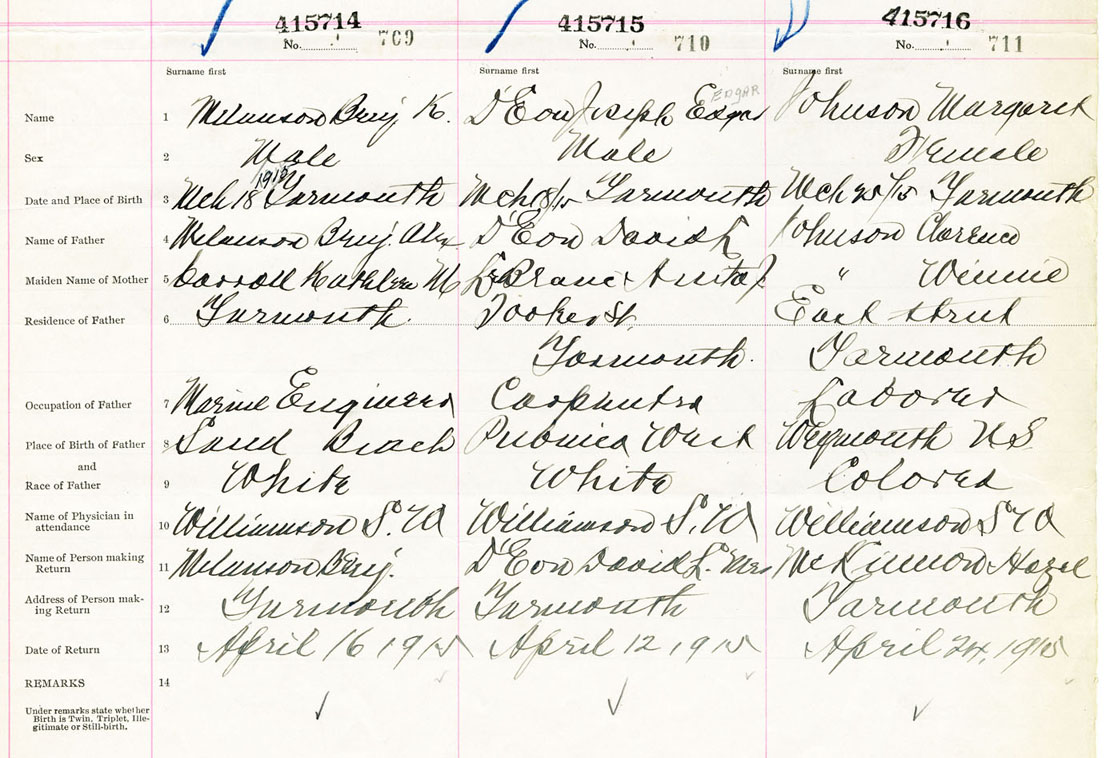 415714 415715 415716
No. 709 No. 710 No. 711
Surname first Surname first Surname first
EDGAR
Name 1 Melanson Benj K. D'Eon Joseph Edgar Johnson Margaret
Sex 2 Male Male Female
1915
Date and Place of Birth 3 Mch 18 Yarmouth Mch 18/15 Yarmouth Mch 25/15 Yarmouth
Name of Father 4 Melanson Benj. Alex D'Eon David L Johnson Clarence
Maiden Name of Mother 5 Carroll Kathleen M LeBlanc Anita J " Winnie
Residence of Father 6 Yarmouth. Tooker St. East Street
Yarmouth. Yarmouth
Occupation of Father 7 Marine Engineer Carpenter Laborer
Place of Birth of Father 8 Sand Beach Pubnico West Weymouth NS
and
Race of Father 9 White White Colored
Name of Physician in
attendance 10 Williamson S. W Williamson S. W Williamson S W
Name of Person making
Return 11 Melanson Benj. D'Eon David L. Mrs McKinnon Hazel
Address of Person mak-
ing Return 12 Yarmouth Yarmouth Yarmouth
Date of Return 13 April 16 1915 April 12 1915 April 24, 1915
REMARKS 14
Under remarks state whether
Birth is Twin, Triplet, Ille-
gitimate or Still-birth.